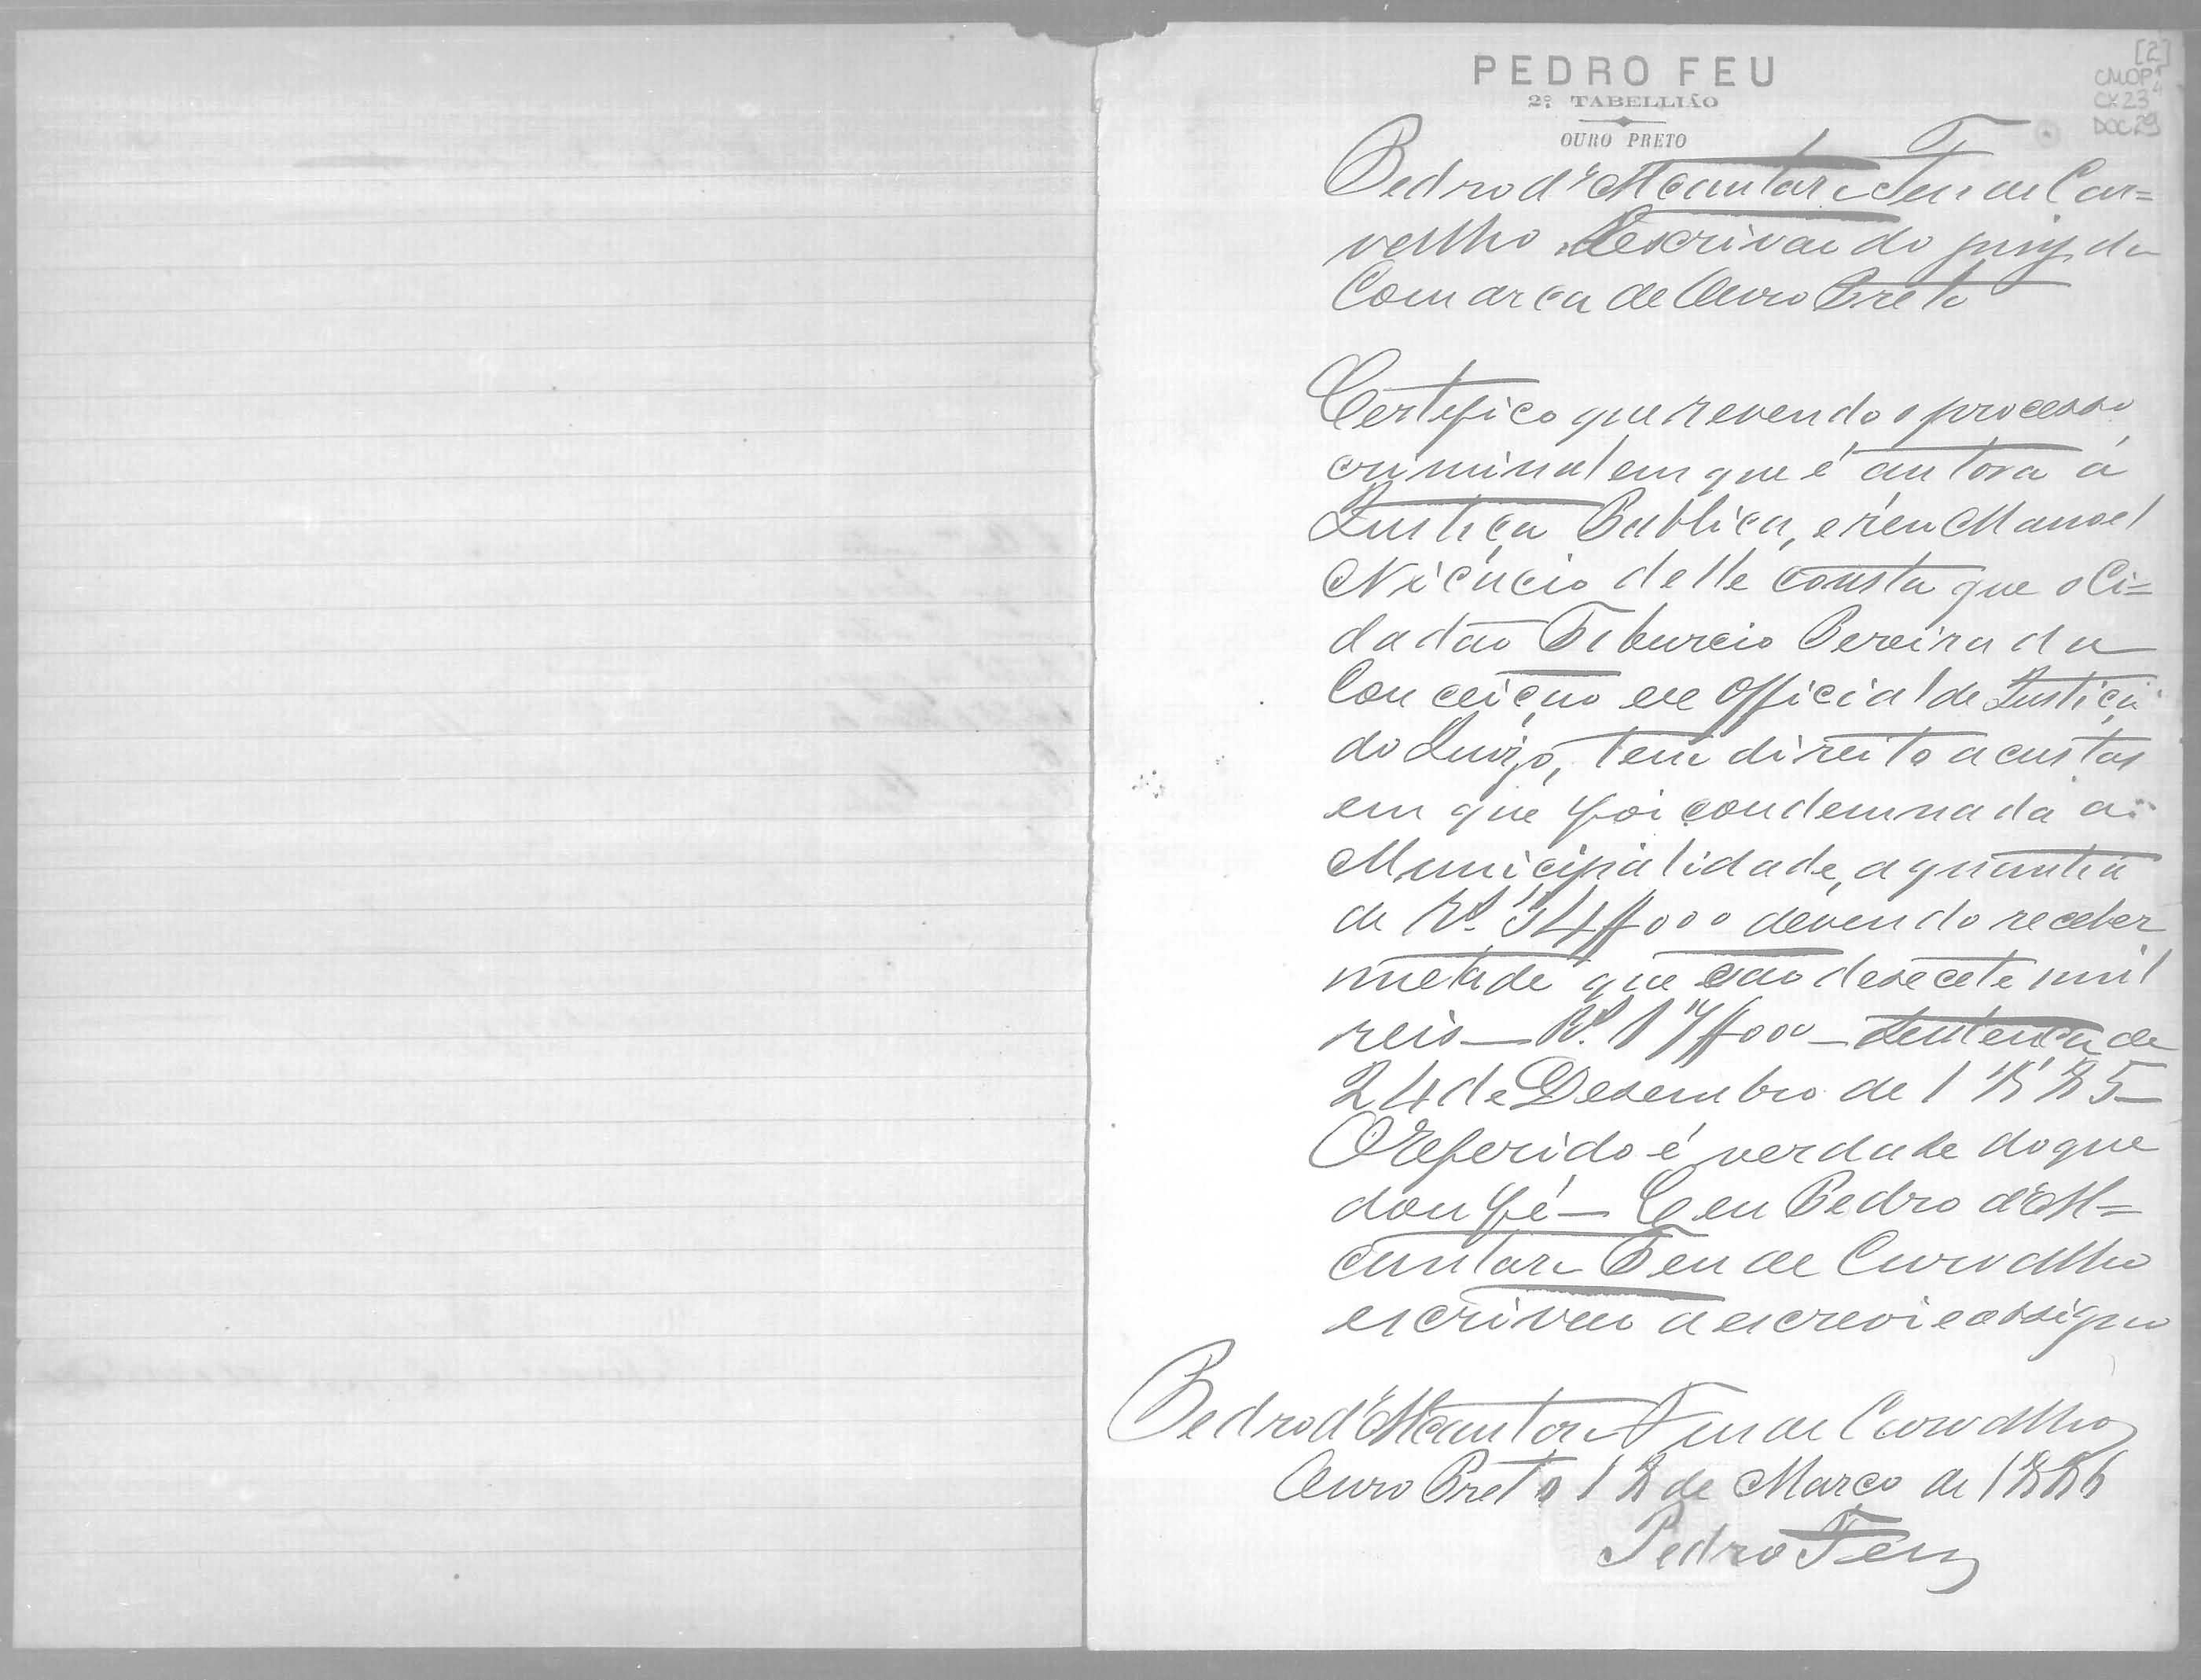 [2]
CMOP
CX 23
DOC 29
PEDRO FEU
2º TABELLIÃO
OURO PRETO
Pedro d'Alcantara Feu de Car=
valho Escrivão do juiz da
Comarca de Ouro Preto
Certifico que revendo o processo
criminal em que é autora a
Justiça Publica, e réu Manoel
Nicácio delle consta que o Ci=
dadão Tiburcio Pereira da
Conceição ex Official de Justiça
do Juizo, tem direito a custas
em que foi condemnada a
Municipalidade, a quantia
de Rs. 34$000 devendo receber
metade que são desecete mil
reis — Rs. 17$000 — Sentença de
24 de Desembro de 1885 —
O Referido é verdade do que
dou fé — E eu Pedro d'Al=
cantara Feu de Carvalho
escrivão a escrevi e assigno
Pedro d'Alcantara Feu de Carvalho
Ouro Preto 12 de Março de 1886
Pedro Feu